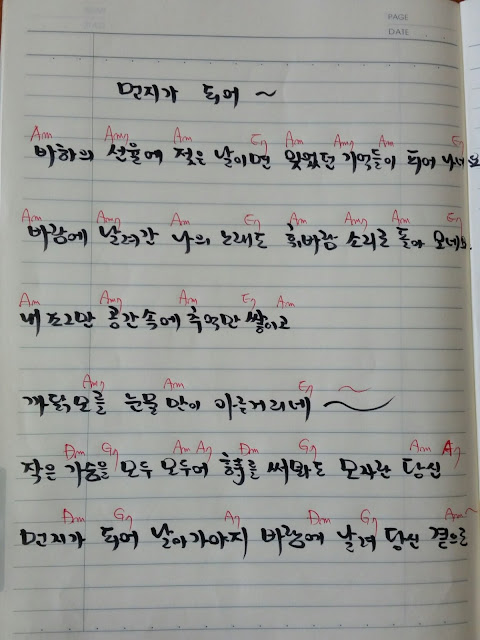 PAGE
DATE
먼지가 되어 ~
Am Am7 Am E7 Am Am7 Am E7
바하의 선율에 젖은 날이면 잊었던 기억들이 되어 나네요
Am Am7 Am E7 Am Am7 Am E7
바람에 날려간 나의 노래도 휘바람 소리로 돌아 오네요.
Am Am7 Am E7 Am
내 조그만 공간속에 추억만 쌓이고
Am7 Am E7 ~
까닭모를 눈물만이 아른거리네
Dm G7 Am A7 Dm G7 Am A7
작은 가슴을 모두 모두어 써봐도 모자란 당신
Dm G7 A7 Dm G7 Am~
먼지가 되어 날아가야지 바람에 날려 당신 곁으로